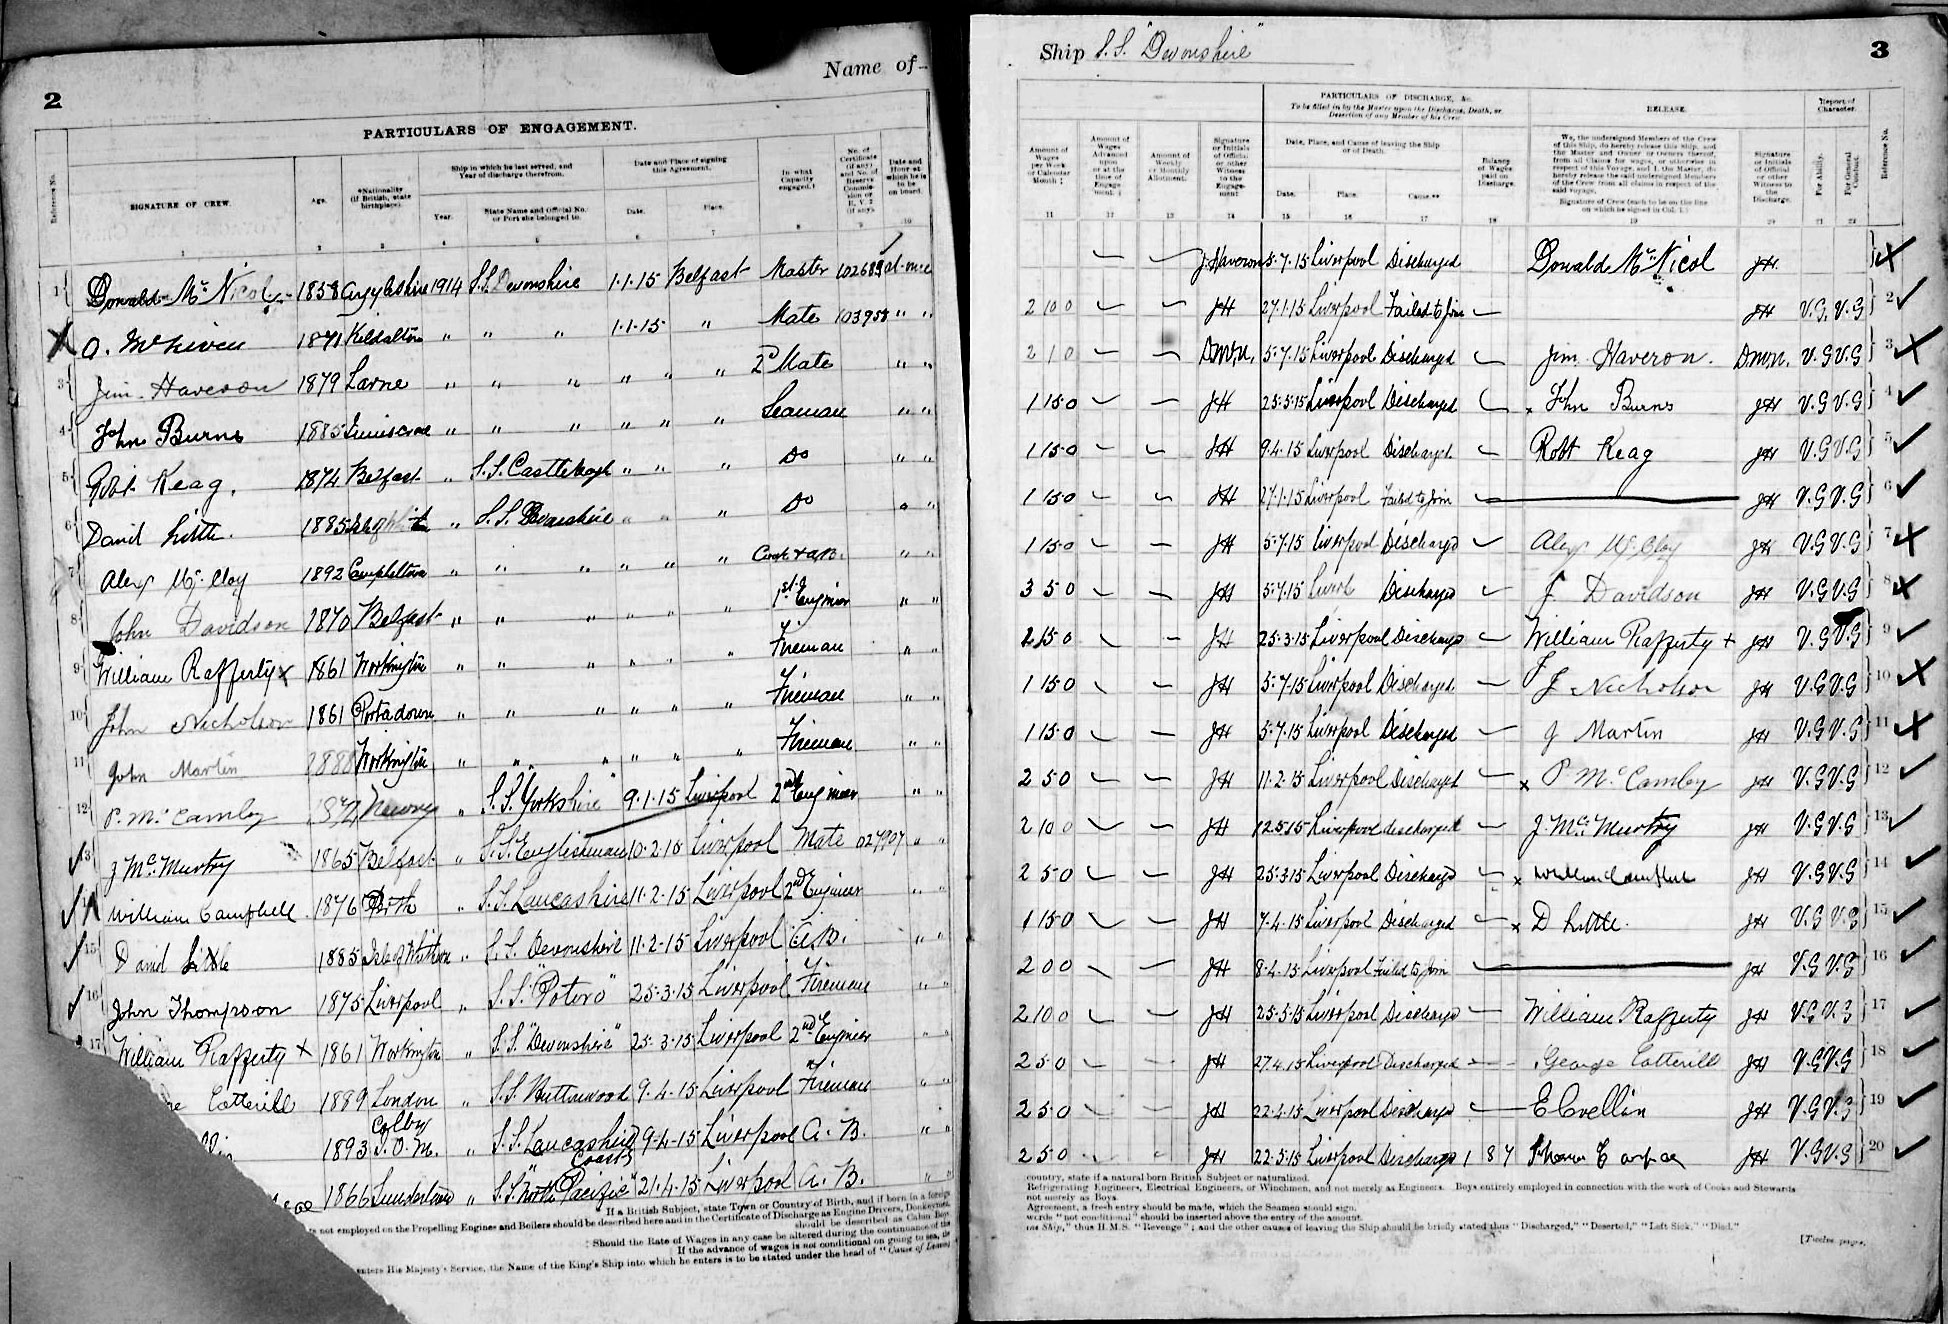 2
Name of-
PARTICULARS OF ENGAGEMENT.
Reference No.
SIGNATURE OF CREW.
Age.
*Nationality (if British, state birthplace).
Ship in which he last served, and Year of discharge therefrom.
Year.
State Name and Official No. or Port she belonged to.
Date and Place of signing this Agreement.
Date.
Place.
In what Capacity engaged.†
No. of Certificate (if any) and No. of Reserve Commission or R.V. 2 (if any).
Date and Hour at which he is to be on board.
1 2 3 4 5 6 7 8 9 10
1 Donald Mc Nicol 1858 Argyleshire 1914 S.S. Devonshire 1.1.15 Belfast Master 102689 at once
X 1871 Kildalton " " " 1.1.15 " Mate 103958 " "
3 Jim Haveron 1879 Larne " " " " " 2nd Mate " "
4 John Burns 1885 " " " " " " Seaman " "
5 Robt Keag. 1874 Belfast " S.S. " " " Do " "
6 David Little. 1885 " S.S. Devonshire " " " Do " "
7 Alex Mc Cloy 1892 " " " " " " Cook & A.B. " "
8 John Davidson 1870 Belfast " " " " " " 1st Enginer " "
9 William Rafferty x 1861 Workington " " " " " " Fireman " "
10 John Nicholson 1861 Portadown " " " " " " Fireman " "
11 John Martin 1888 Workington " " " " " " Fireman " "
12 P. Mc Camley Newry " S.S. "Yorkshire" 9.1.15 Liverpool 2nd Enginer " "
13 J Mc. Murtry 1865 Belfast " S.S. Englishman 10.2.15 Liverpool Mate 027907 " "
William Campbell. 1876 Perth " S.S. Lancashire 11.2.15 Liverpool 2nd Engineer " "
15 David Little 1885 Isle of Whithorn " S.S. Devonshire 11.2.15 Liverpool A.B. " "
16 John Thompson 1875 Liverpool " S.S. "Potoro" 25.3.15 Liverpool Fireman " "
17 William Rafferty x 1861 Workington " S.S. "Devonshire" 25.3.15 Liverpool 2nd Enginer " "
Cotterill 1889 London " S.S. 9.4.15 Liverpool Fireman " "
1893 Colby I.O.M. " S.S. Lancashire 9.4.15 Liverpool A.B. " "
1866 Sunderland " S.S. "North Pacific Coast" 21.4.15 Liverpool A.B. " "
If a British Subject, state Town or Country of Birth, and if born in a foreign
not employed on the Propelling Engines and Boilers should be described here and in the Certificate of Discharge as Engine Drivers, Donkeymen,
should be described as Cabin Boys
‡ Should the Rate of Wages in any case be altered during the continuance of the
If the advance of wages is not conditional on going to sea, the
enters His Majesty's Service, the Name of the King's Ship into which he enters is to be stated under the head of "Cause of Leaving
Ship S.S. "Devonshire"
3
PARTICULARS OF DISCHARGE, &c.
To be filled in by the Master upon the Discharge, Death, or Desertion of any Member of his Crew.
RELEASE.
Report of Character.
Amount of Wages per Week or Calendar Month ‡
Amount of Wages Advanced upon or at the time of Engagement. §
Amount of Weekly or Monthly Allotment.
Signature or Initials of Official or other Witness to the Engagement
Date, Place, and Cause of leaving the Ship or of Death.
Date.
Place.
Cause.**
Balance of Wages paid on Discharge.
We, the undersigned Members of the Crew of this Ship, do hereby release this Ship, and the Master and Owner or Owners thereof, from all Claims for wages, or otherwise in respect of this Voyage, and I, the Master, do hereby release the said undersigned Members of the Crew from all claims in respect of the said voyage.
Signature of Crew (each to be on the line on which he signed in Col. 1.)
Signature or Initials of Official or other Witness to the Discharge.
For Ability.
For General Conduct.
Reference No.
11 12 13 14 15 16 17 18 19 20 21 22
J. Haveron 5.7.15 Liverpool Discharged Donald Mc Nicol JH
2 10 0 JH 27.1.15 Liverpool Failed to Join JH V.G. V.G 2
2 1 0 D.McN. 5.7.15 Liverpool Discharged Jim. Haveron. D.McN. V.G V.G 3
1 15 0 JH 25.5.15 Liverpool Discharged x John Burns JH V.G V.G 4
1 15 0 JH 9.4.15 Liverpool Discharged Robt Keag JH V.G V.G 5
1 15 0 JH 27.1.15 Liverpool Failed to Join JH V.G V.G 6
1 15 0 JH 5.7.15 Liverpool Discharged Alex Mc. Cloy JH V.G V.G 7
3 5 0 JH 5.7.15 Discharged J Davidson JH V.G V.G 8
2 15 0 JH 25.3.15 Liverpool Discharged William Rafferty + JH V.G V.G 9
1 15 0 JH 5.7.15 Liverpool Discharged J Nicholson JH V.G V.G 10
1 15 0 JH 5.7.15 Liverpool Discharged J Martin JH V.G V.G 11
2 5 0 JH 11.2.15 Liverpool Discharged x P Mc Camley JH V.G V.G 12
2 10 0 JH 12.5.15 Liverpool discharged J. Mc. Murtry JH V.G V.G 13
2 5 0 JH 25.3.15 Liverpool Discharged x William Campbell JH V.G V.G 14
1 15 0 JH 7.4.15 Liverpool Discharged x D Little. JH V.G V.G 15
2 0 0 JH 8.4.15 Liverpool Failed to Join JH V.G V.G 16
2 10 0 JH 25.5.15 Liverpool Discharged William Rafferty JH V.G V.G 17
2 5 0 JH 27.4.15 Liverpool Discharged George Cotterill JH V.G V.G 18
2 5 0 JH 22.4.15 Liverpool Discharged E Cvellin JH V.G V.G 19
2 5 0 JH 22.5.15 Liverpool Discharge 1 8 7 JH V.G V.G 20
country, state if a natural born British Subject or naturalized.
Refrigerating Engineers, Electrical Engineers, or Winchmen, and not merely as Engineers. Boys entirely employed in connection with the work of Cooks and Stewards
not merely as Boys.
Agreement, a fresh entry should be made, which the Seamen should sign.
words "not conditional" should be inserted above the entry of the amount.
the Ship," thus H.M.S. "Revenge"; and the other causes of leaving the Ship should be briefly stated thus "Discharged," "Deserted," "Left Sick," "Died."
[Twelve pages.